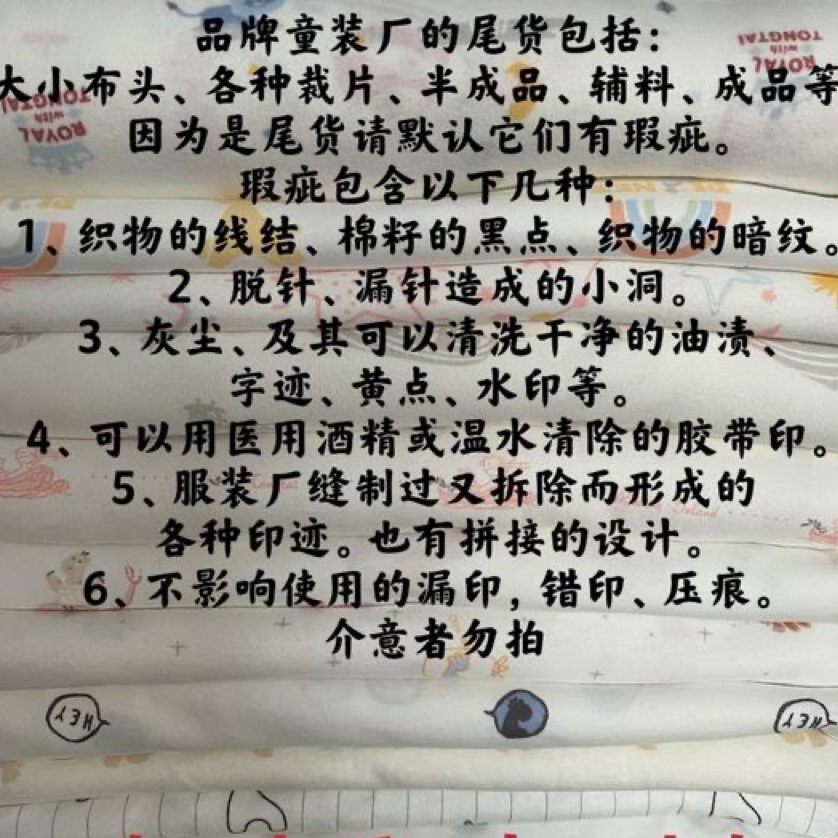 品牌童装厂的尾货包括:
大小布头、各种裁片、半成品、辅料、成品等
因为是尾货请默认它们有瑕疵。
瑕疵包含以下几种:
1、织物的线结、棉籽的黑点、织物的暗纹。
2、脱针、漏针造成的小洞。
3、灰尘、及其可以清洗干净的油渍、
字迹、黄点、水印等。
4、可以用医用酒精或温水清除的胶带印。
5、服装厂缝制过又拆除而形成的
各种印迹。也有拼接的设计。
6、不影响使用的漏印,错印、压痕。
介意者勿拍
ROYAL
with
TONGTAI
ROYAL
with
TONGTAI
HEY
HEY